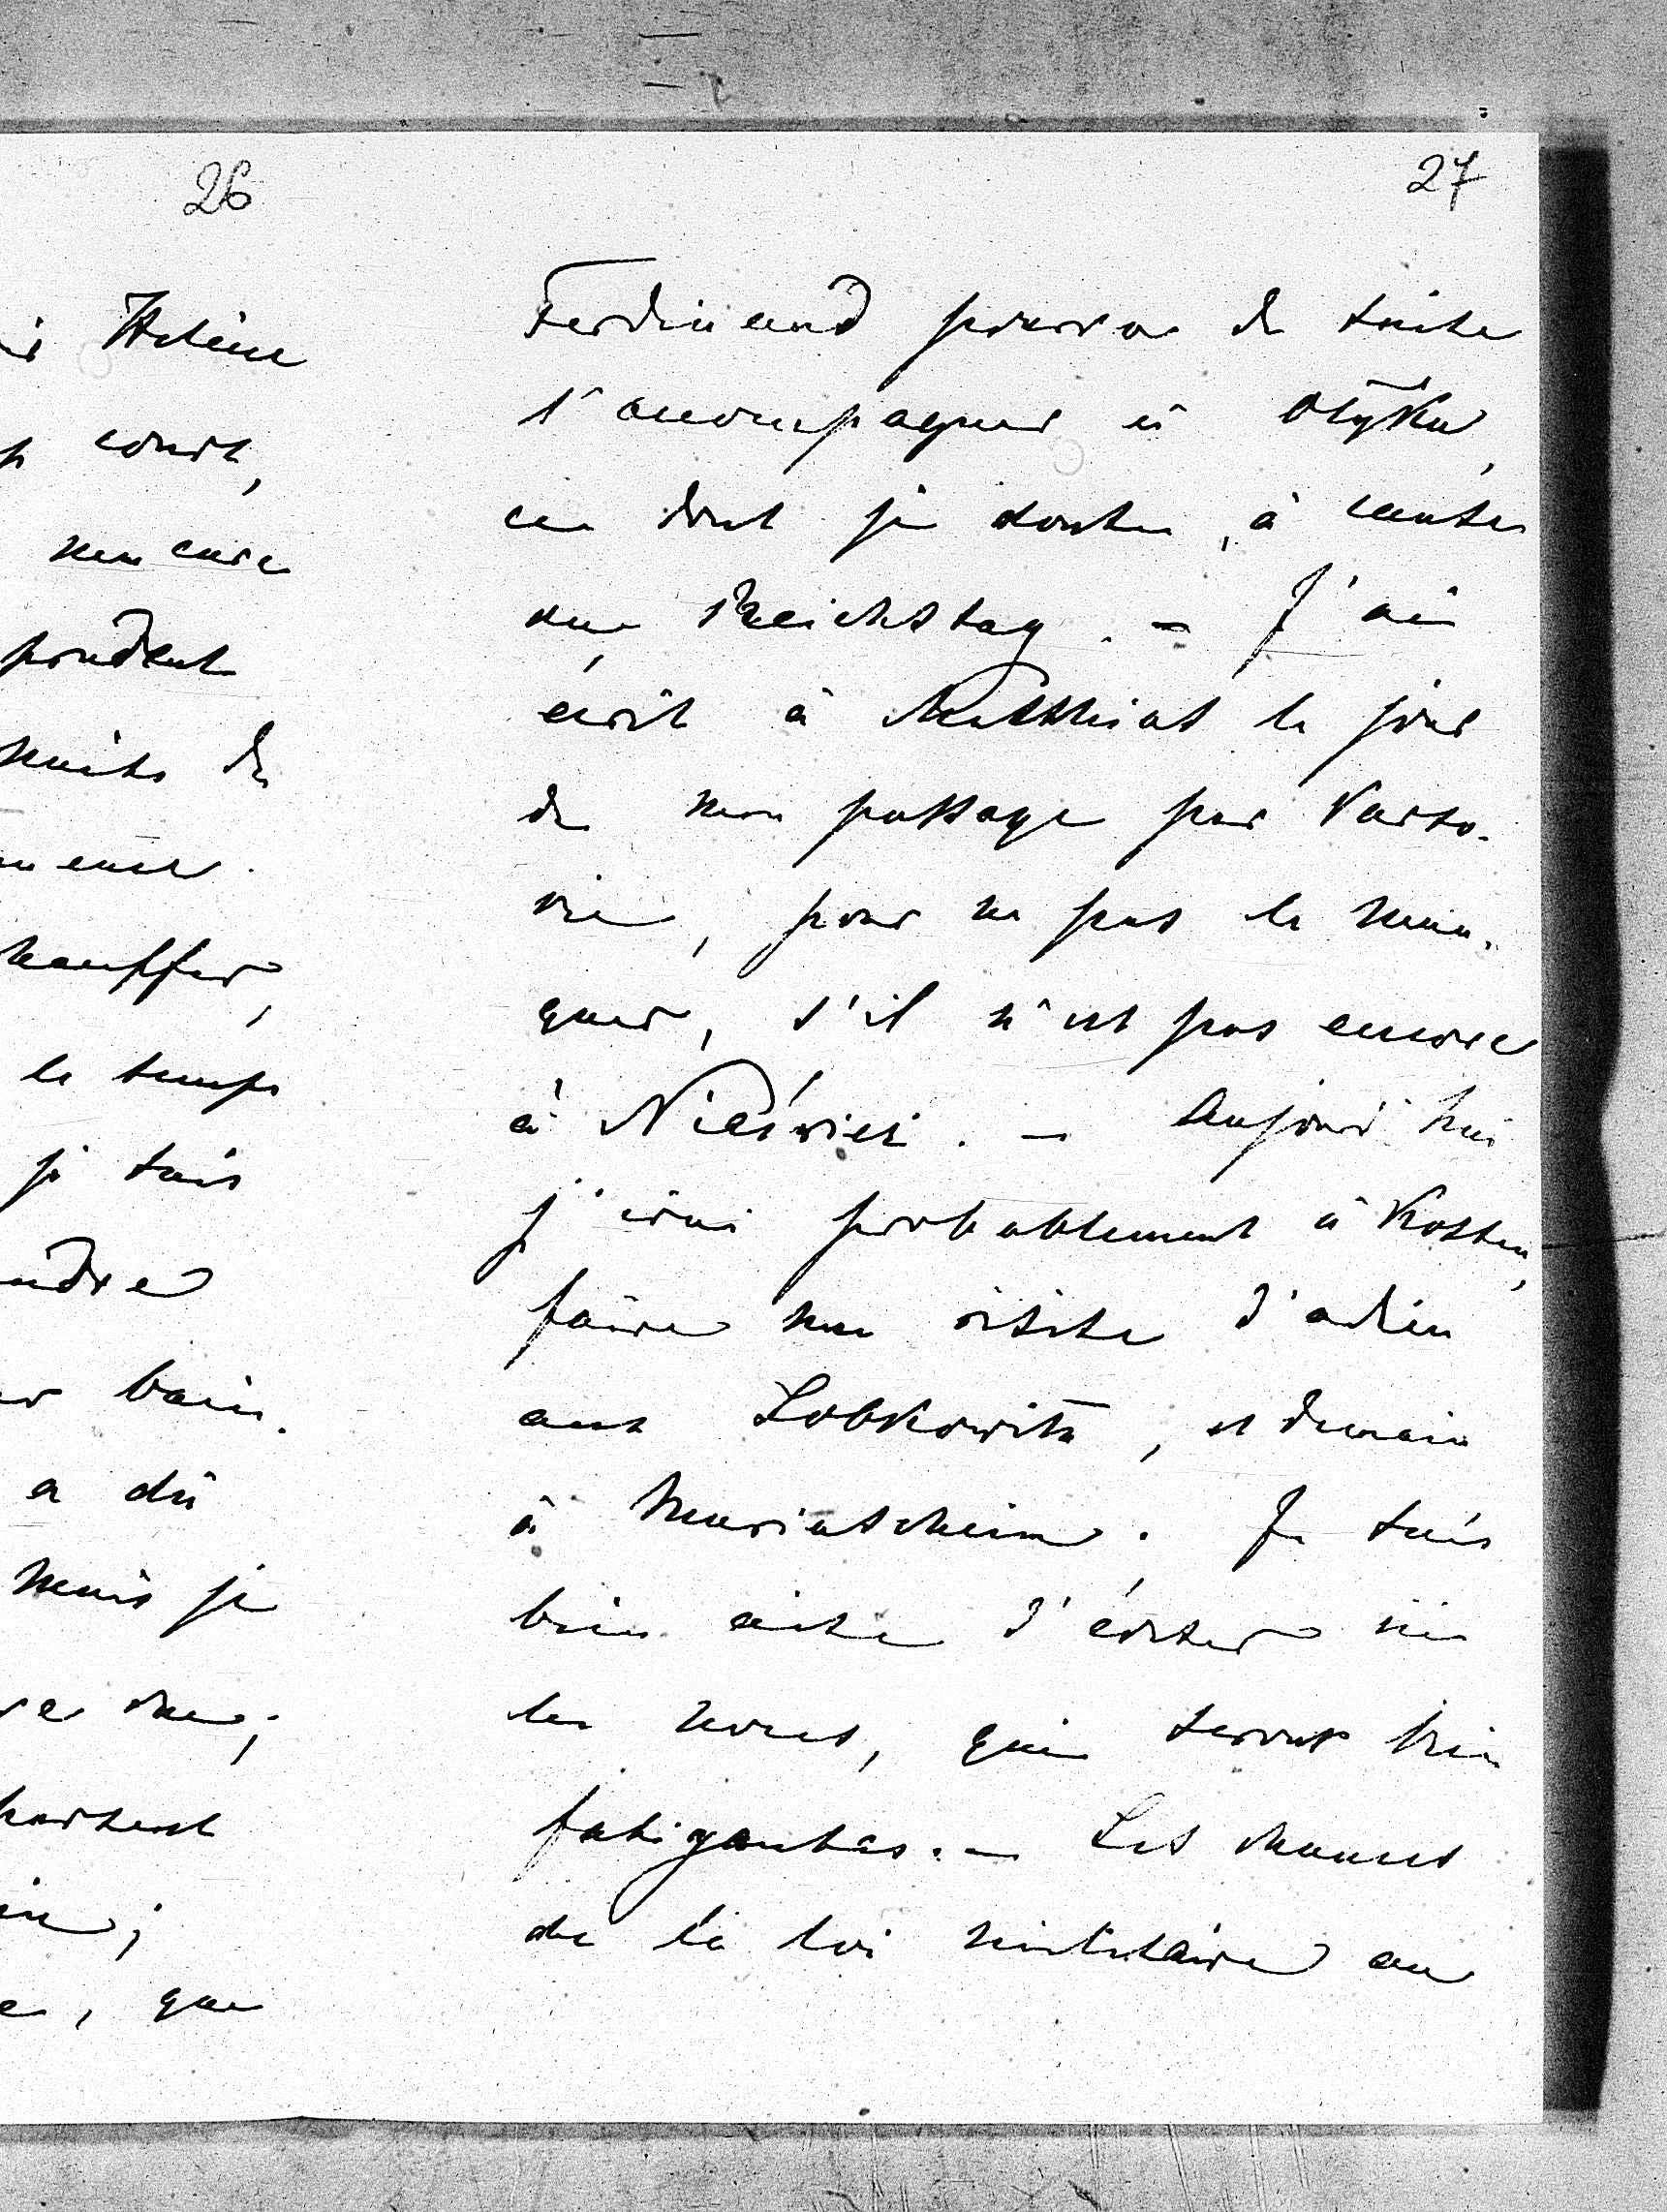 26
Hélène
court,
me care
pondent
nuits de
hauffer,
le temps
je suis
ndre
bain.
a dû
mais je
partent
, que
27
Ferdinand pourra de suite
s'accompagner à Olyka,
ce dont je doute, à cause
du Reichstag. – J'ai
écrit à Matthias le jour
de mon passage par Varso-
vie, pour ne pas le man-
quer, s'il n'est pas encore
à Nieśwież. – Aujourd'hui
j'irai probablement à Kosten,
faire ma visite d'adieu
aux Lobkowitz, et demain
à Mariaschein. Je suis
bien aise d'éviter ici
les noces, qui seront bien
fatigantes. – Les chances
de la loi militaire au